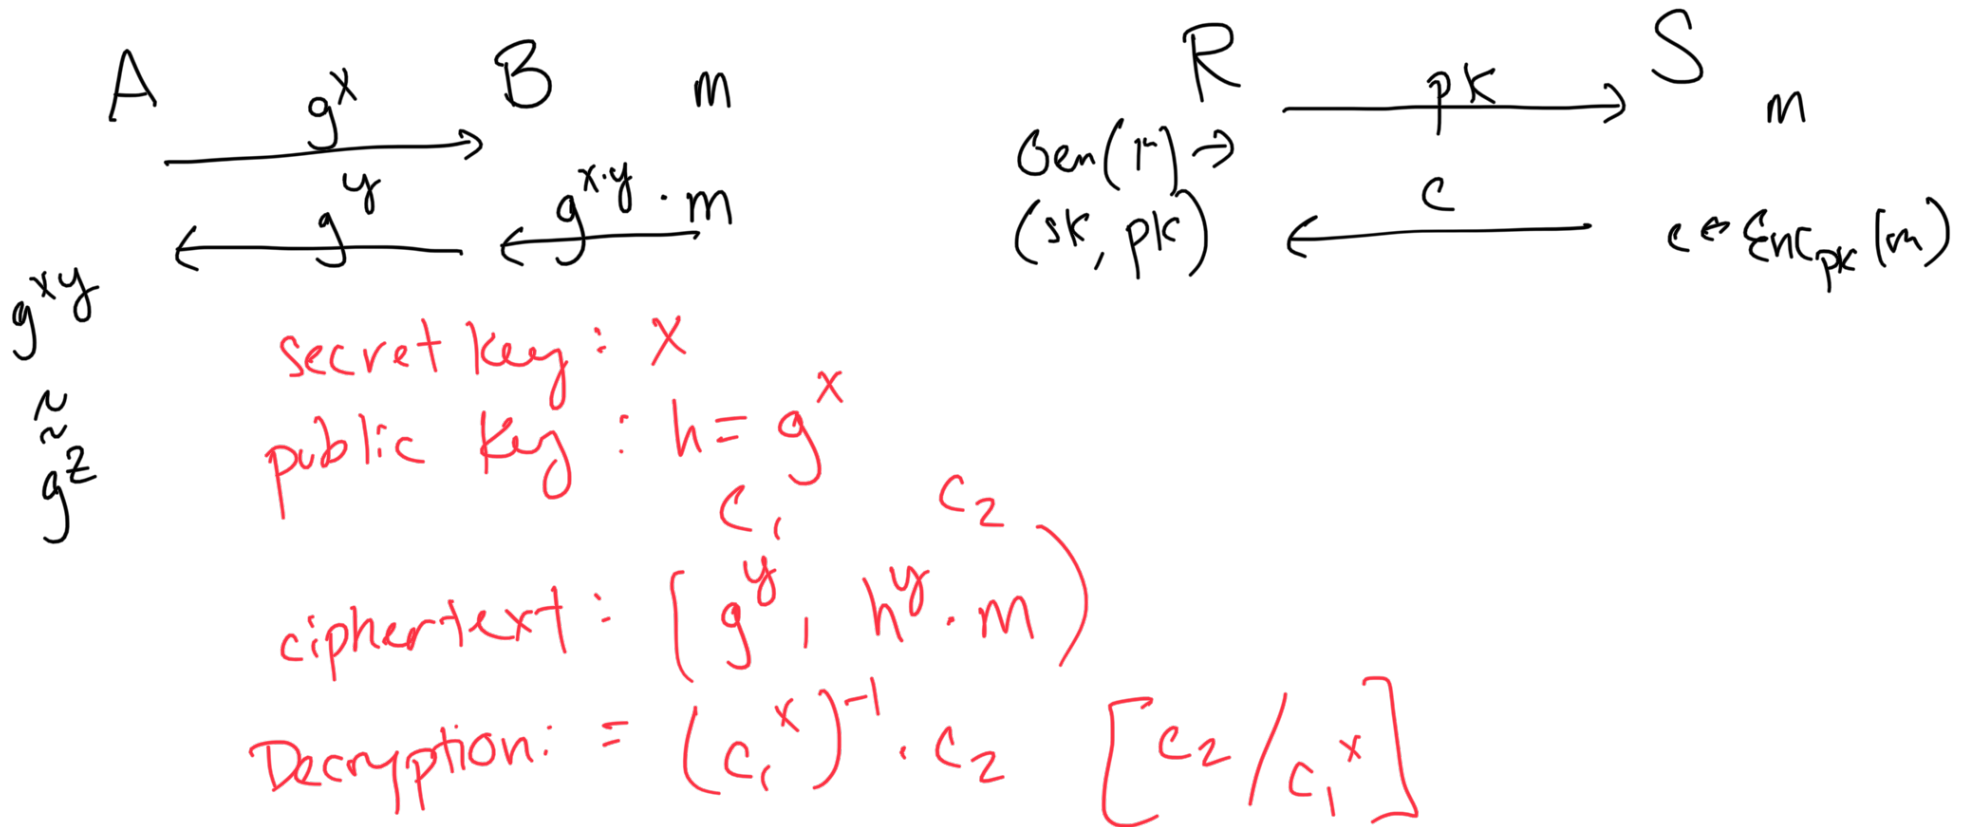 A g^x B m
g^y g^{x·y} · m
g^{xy}
≈
g^z
R pk S m
Gen(1^n) →
(sk, pk) c c ← Enc_{pk}(m)
secret key: x
public key: h = g^x
c_1 c_2
ciphertext: (g^y, h^y · m)
Decryption: = (c_1^x)^{-1} · c_2 [c_2/c_1^x]